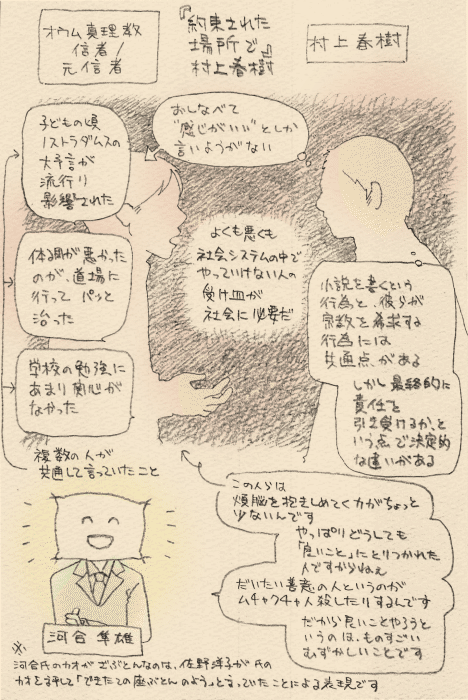 オウム真理教
信者/
元信者
『約束された
場所で』
村上春樹
村上春樹
おしなべて
"感じがいい"としか
言いようがない
子どもの頃
ノストラダムスの
大予言が
流行り
影響された
体調が悪かった
のが、道場に
行って パッと
治った
学校の勉強に
あまり関心が
なかった
複数の人が
共通して言っていたこと
よくも悪くも
社会システムの中で
やっていけない人の
受け皿が
社会に必要だ
小説を書くという
行為と、彼らが
宗教を希求する
行為には
共通点がある
しかし最終的に
責任を
引き受けるか、と
いう点で決定的
な違いがある
この人らは
煩悩を抱きしめてく力がちょっと
少ないんです
やっぱりどうしても
「良いこと」にとりつかれた
人ですからねぇ
だいたい善意の人というのが
ムチャクチャ人殺したりするんです
だから良いことやろうと
いうのは、ものすごい
むずかしいことです
河合隼雄
※
河合氏のカオがざぶとんなのは、佐野洋子が氏の
カオを評して「できたての座ぶとんのよう」と言っていたことによる表現です